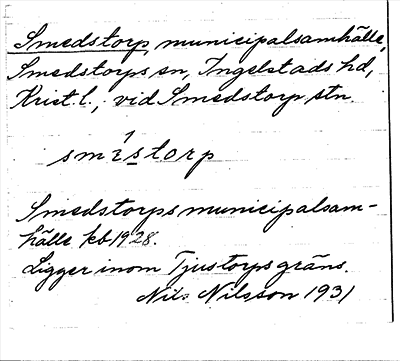 Smedstorp, municipalsamhälle,
Smedstorps sn, Ingelstads hd,
Krist. l., vid Smedstorp stn.
storp
Smedstorps municipalsam-
hälle kb 1928.
Ligger inom Tjustorps gräns.
Nils Nilsson 1931